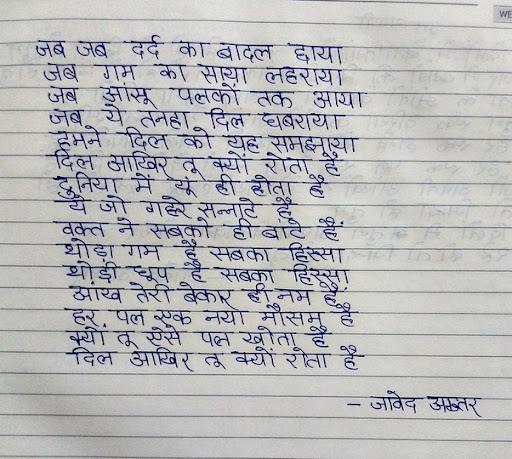 WE
जब जब दर्द का बादल छाया
जब गम का साया लहराया
जब आंसू पलकों तक आया
जब ये तनहा दिल घबराया
हमने दिल को यह समझाया
दिल आखिर तू क्यों रोता है
दुनिया में यूं ही होता है
ये जो गहरे सन्नाटे हैं
वक्त ने सबको ही बांटे हैं
थोड़ा गम है सबका हिस्सा
थोड़ी धूप है सबका हिस्सा
आंख तेरी बेकार ही नम है
हर पल एक नया मौसम है
क्यों तू ऐसे पल खोता है
दिल आखिर तू क्यों रोता है
- जावेद अख्तर